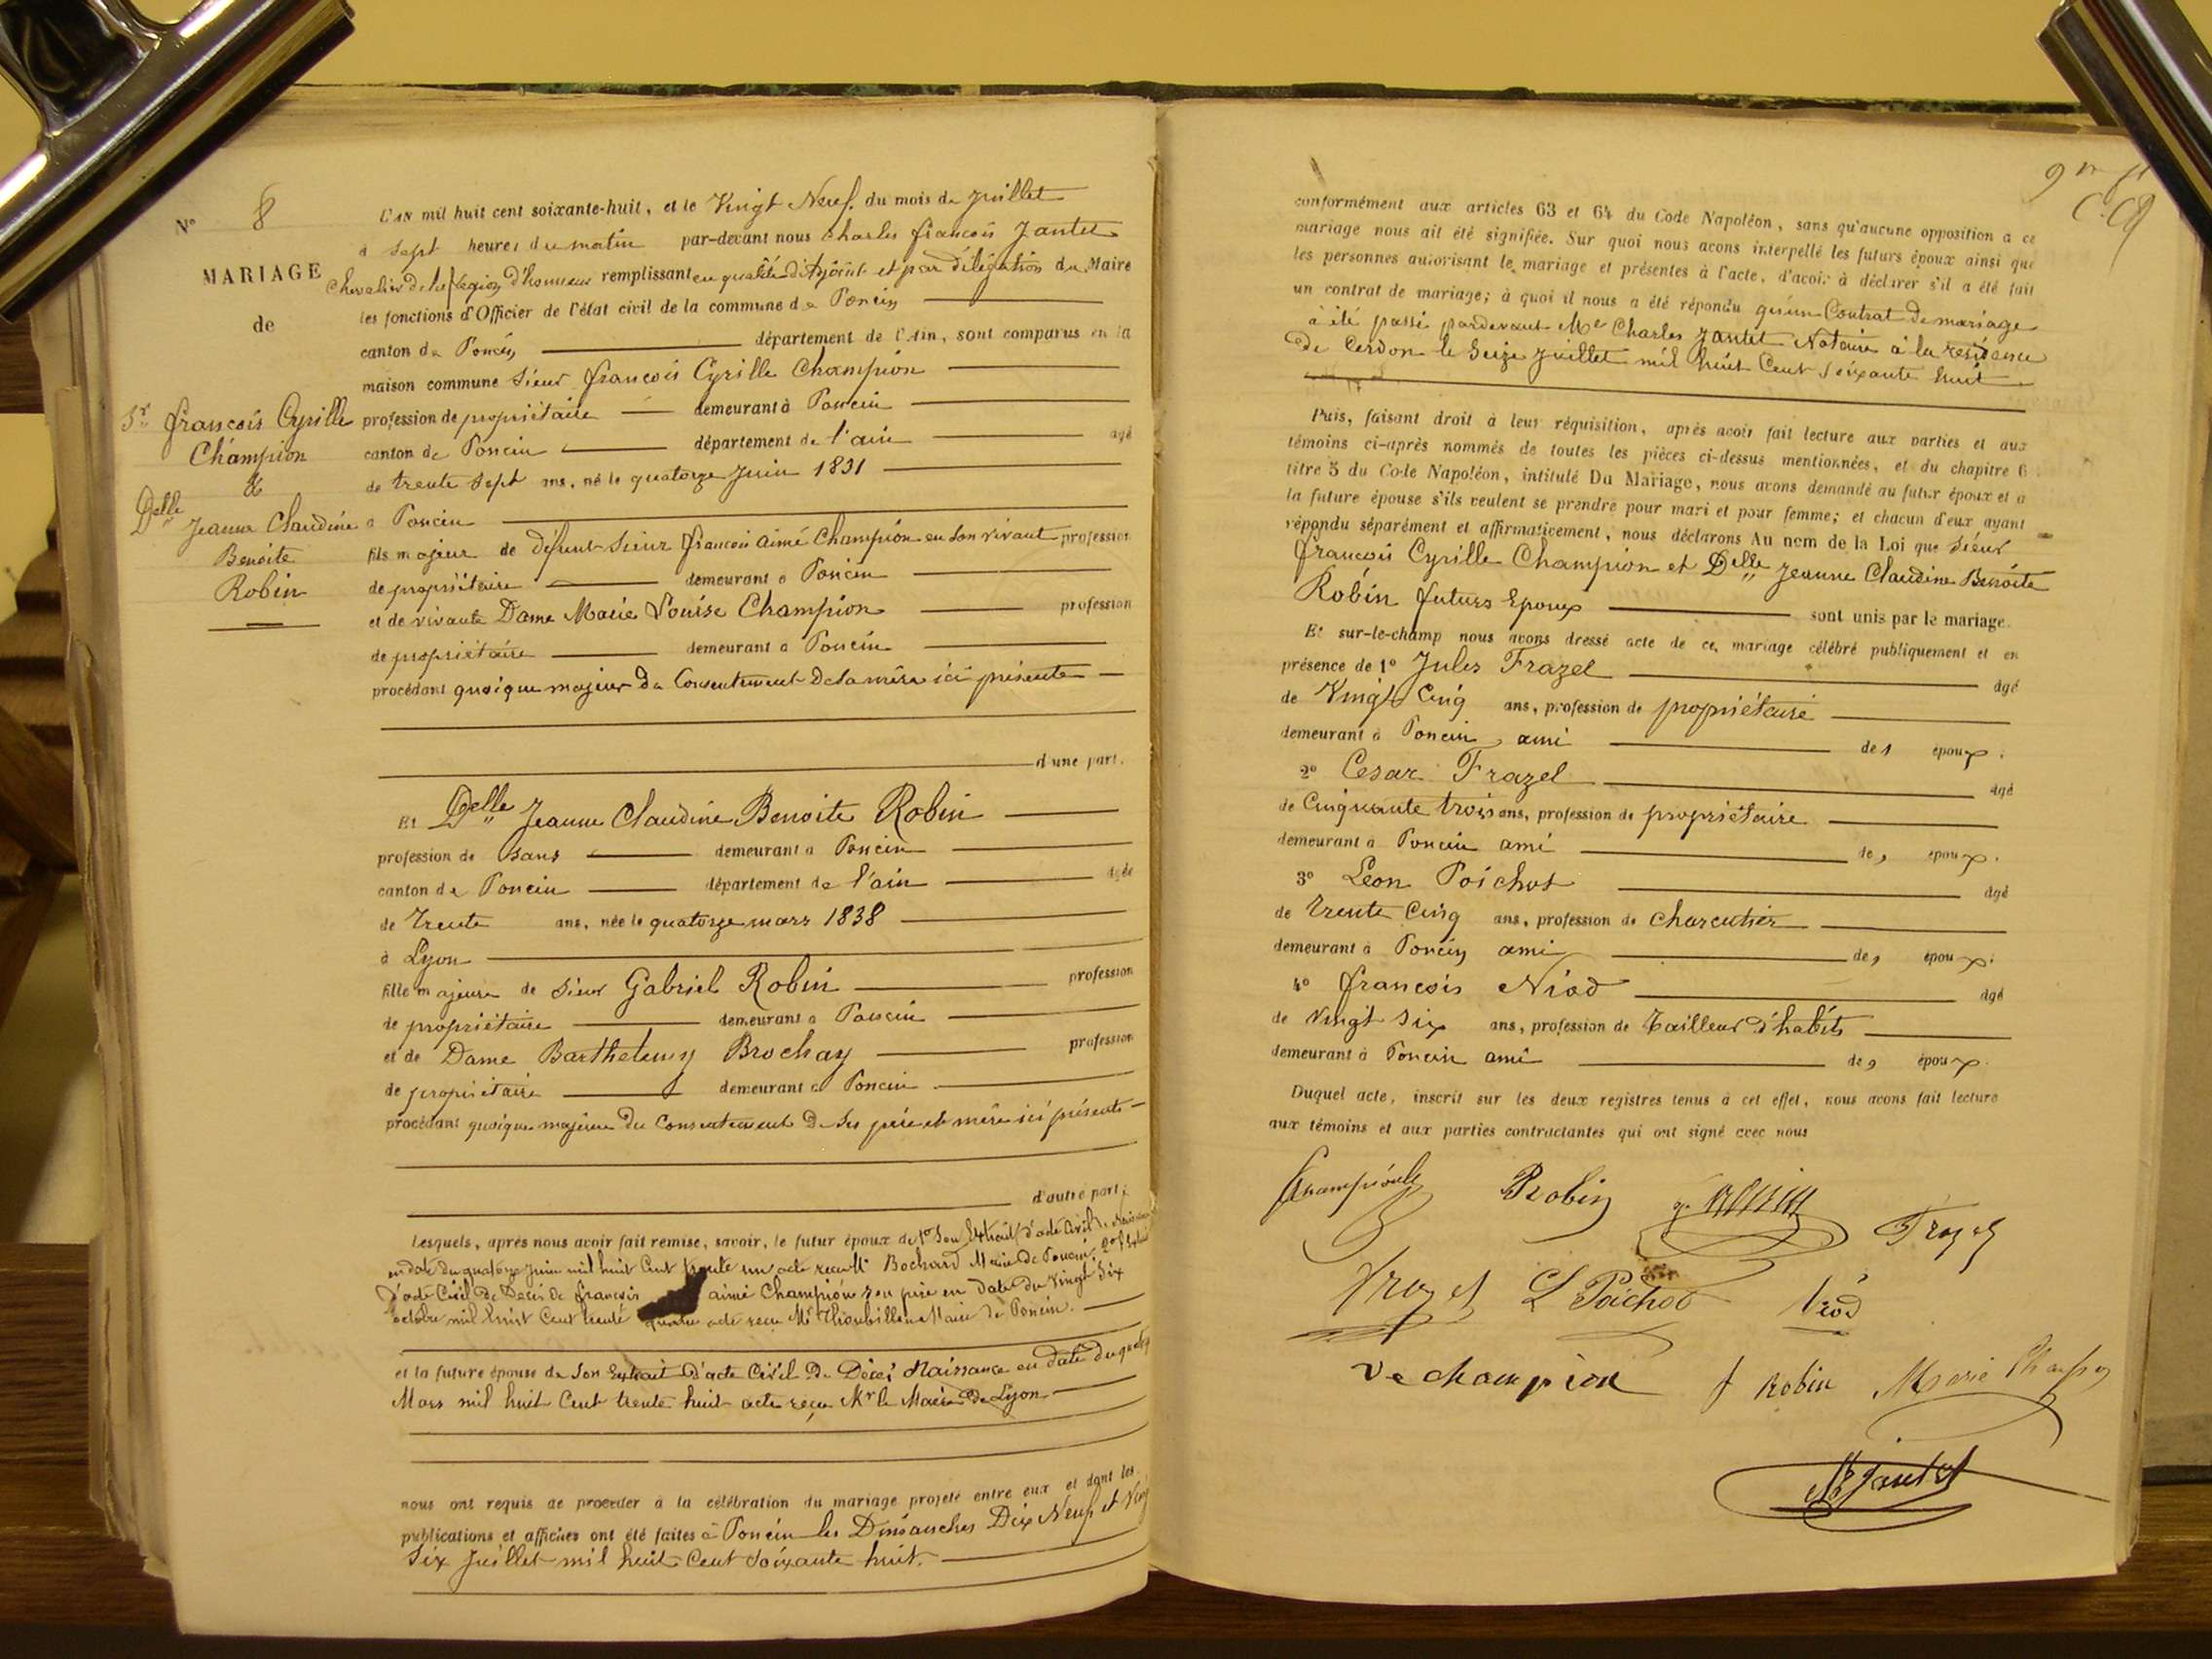 N° 8
MARIAGE
de
Sr françois Cyrille
Champion
&
Delle Jeanne Claudine
Benoite
Robin
L'AN mil huit cent soixante-huit, et le Vingt Neuf. du mois de juillet
à sept heures du matin par-devant nous charles françois Jantet
Chevalier de la Légion d'honneur remplissant en qualité d'Adjoint et par délégation du Maire
les fonctions d'Officier de l'état civil de la commune de Poncin
canton de Poncin département de l'Ain, sont comparus en la
maison commune Sieur françois Cyrille Champion
profession de propriétaire demeurant à Poncin
canton de Poncin département de l'ain agé
de trente sept ans, né le quatorze Juin 1831
à Poncin
fils majeur de défunt Sieur françois aimé Champion en son vivant profession
de propriétaire demeurant à Poncin
et de vivante Dame Marie Louise Champion profession
de propriétaire demeurant à Poncin
procédant quoique majeur du Consentement de sa mère ici présente
d'une part.
Et Delle Jeanne Claudine Benoite Robin
profession de sans demeurant à Poncin
canton de Poncin département de l'ain agée
de Trente ans, née le quatorze mars 1838
à Lyon
fille majeure de Sieur Gabriel Robin profession
de propriétaire demeurant à Poncin
et de Dame Barthelemy Brochay profession
de propriétaire demeurant à Poncin
procédant quoique majeure du Consentement de ses père et mère ici présents
d'autre part;
Lesquels, après nous avoir fait remise, savoir, le futur époux de 1° Son Extrait d'acte Civil de Naissance
en date du quatorze juin mil huit Cent trente un acte reçu Mr Bochard Maire de Poncin. 2°
d'acte Civil de Décès de françois aimé Champion son père en date du Vingt Six
octobre mil huit Cent trente quatre acte reçu Mr Maire de Poncin.
et la future épouse de Son Extrait d'acte Civil de Décès Naissance en date du quatorze
Mars mil huit Cent trente huit acte reçu Mr le Maire de Lyon
nous ont requis de procéder à la célébration du mariage projeté entre eux et dont les
publications et affiches ont été faites à Poncin les Dimanches Dix Neuf et Vingt
Six Juillet mil huit Cent Soixante huit.
conformément aux articles 63 et 64 du Code Napoléon, sans qu'aucune opposition à ce
mariage nous ait été signifiée. Sur quoi nous avons interpellé les futurs époux ainsi que
les personnes autorisant le mariage et présentes à l'acte, d'avoir à déclarer s'il a été fait
un contrat de mariage; à quoi il nous a été répondu qu'un Contrat de mariage
à été passé pardevant Me Charles Jantet Notaire à la residence
de Cerdon le Seize Juillet mil huit Cent Soixante huit
Puis, faisant droit à leur réquisition, après avoir fait lecture aux parties et aux
témoins ci-après nommés de toutes les pièces ci-dessus mentionnées, et du chapitre 6
titre 5 du Code Napoléon, intitulé Du Mariage, nous avons demandé au futur époux et à
la future épouse s'ils veulent se prendre pour mari et pour femme; et chacun d'eux ayant
répondu séparément et affirmativement, nous déclarons Au nom de la Loi que Sieur
françois Cyrille Champion et Delle Jeanne Claudine Benoite
Robin futurs Epoux sont unis par le mariage.
Et sur-le-champ nous avons dressé acte de ce mariage célébré publiquement et en
présence de 1° Jules Frazel agé
de Vingt Cinq ans, profession de propriétaire
demeurant à Poncin ami des époux.
2° Cesar Frazel agé
de Cinquante trois ans, profession de propriétaire
demeurant à Poncin ami des époux.
3° Léon Poichot agé
de trente Cinq ans, profession de charcutier
demeurant à Poncin ami des époux.
4° françois Niod agé
de Vingt Six ans, profession de Tailleur d'habits
demeurant à Poncin ami des époux.
Duquel acte, inscrit sur les deux registres tenus à cet effet, nous avons fait lecture
aux témoins et aux parties contractantes qui ont signé avec nous
Robin
L Poichot Niod
Ve champion f Robin Marie
Jantet